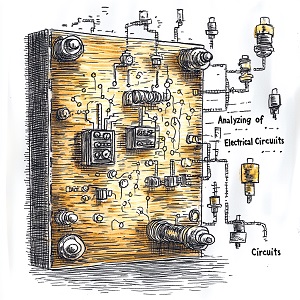 Analyzing of
Electrical Circuits
Circuits